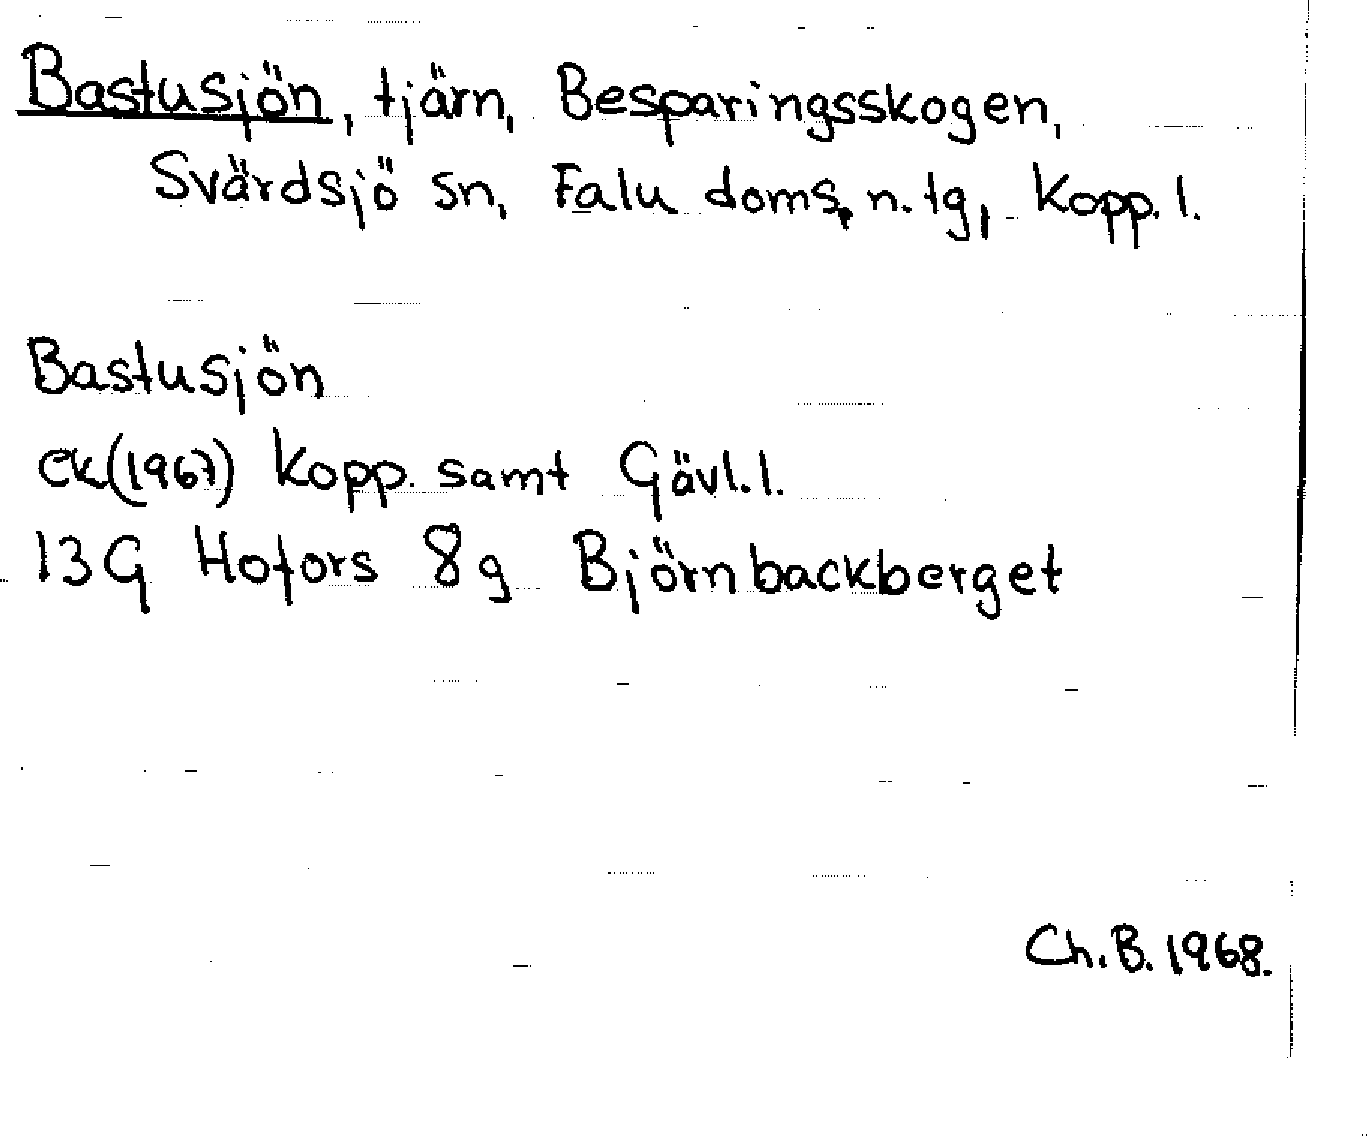 Bastusjön, tjärn, Besparingsskogen,
Svärdsjö sn, Falu doms, n. tg, Kopp. l.
Bastusjön
ek(1967) Kopp. samt Gävl. l.
13G Hofors 8g Björnbackberget
Ch. B. 1968.